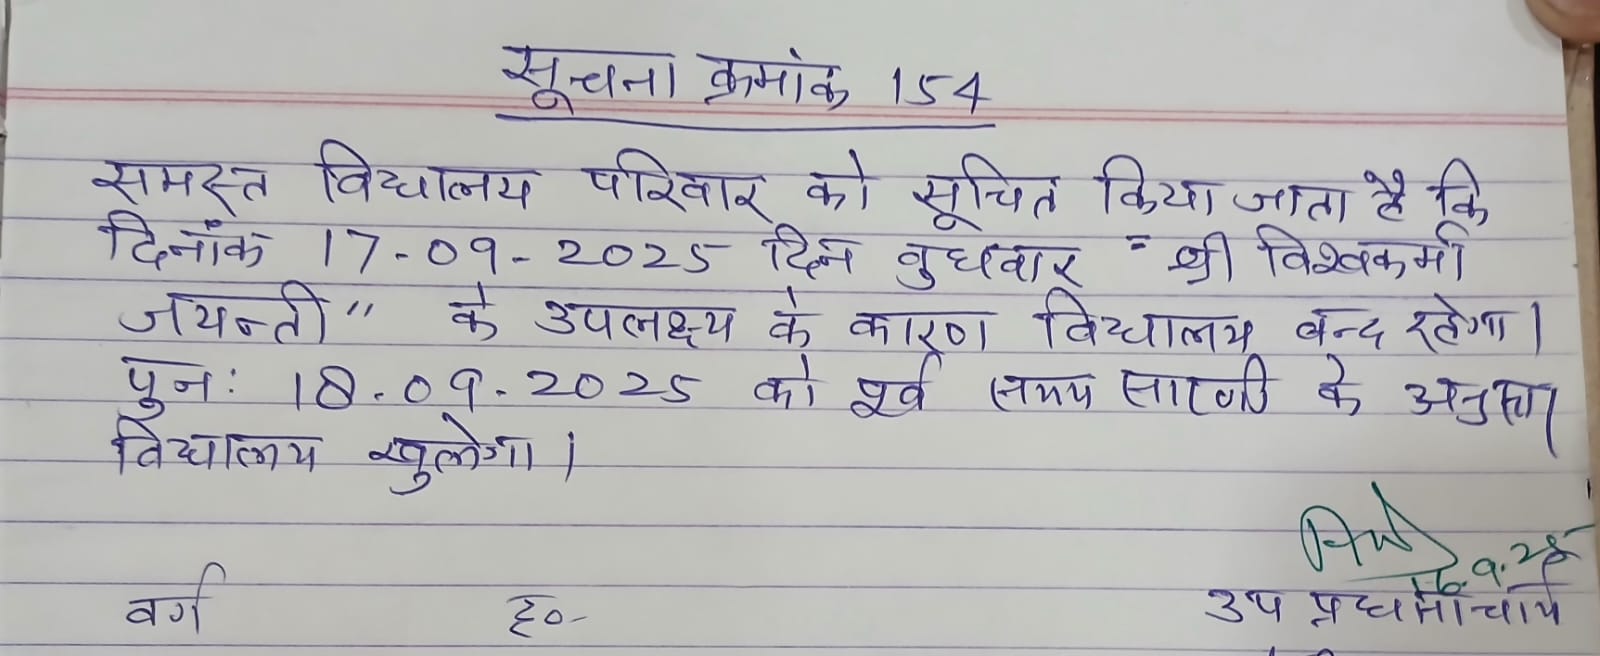 सूचना क्रमांक 154
समस्त विद्यालय परिवार को सूचित किया जाता है कि
दिनाँक 17-09-2025 दिन बुधवार "श्री विश्वकर्मा
जयन्ती" के उपलक्ष्य के कारण विद्यालय बन्द रहेगा।
पुनः 18.09.2025 को पूर्व समय सारणी के अनुसार
विद्यालय खुलेगा।
16.9.25
वर्ग ह०- उप प्रधानाचार्य